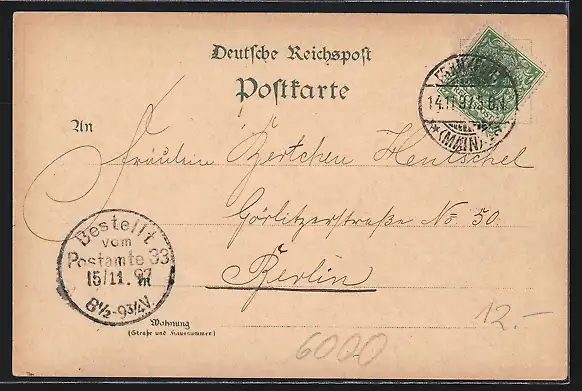 Deutsche Reichspost
Postkarte
FRANKFURT
14.11.97.
(MAIN)
An
Fräulein Bertchen Hentschel
Görlitzerstraße No. 50.
Berlin
Bestellt
vom
Postamte 33
15/11. 97
8½-9¾V.
Wohnung
(Straße und Hausnummer)
6000
12.-